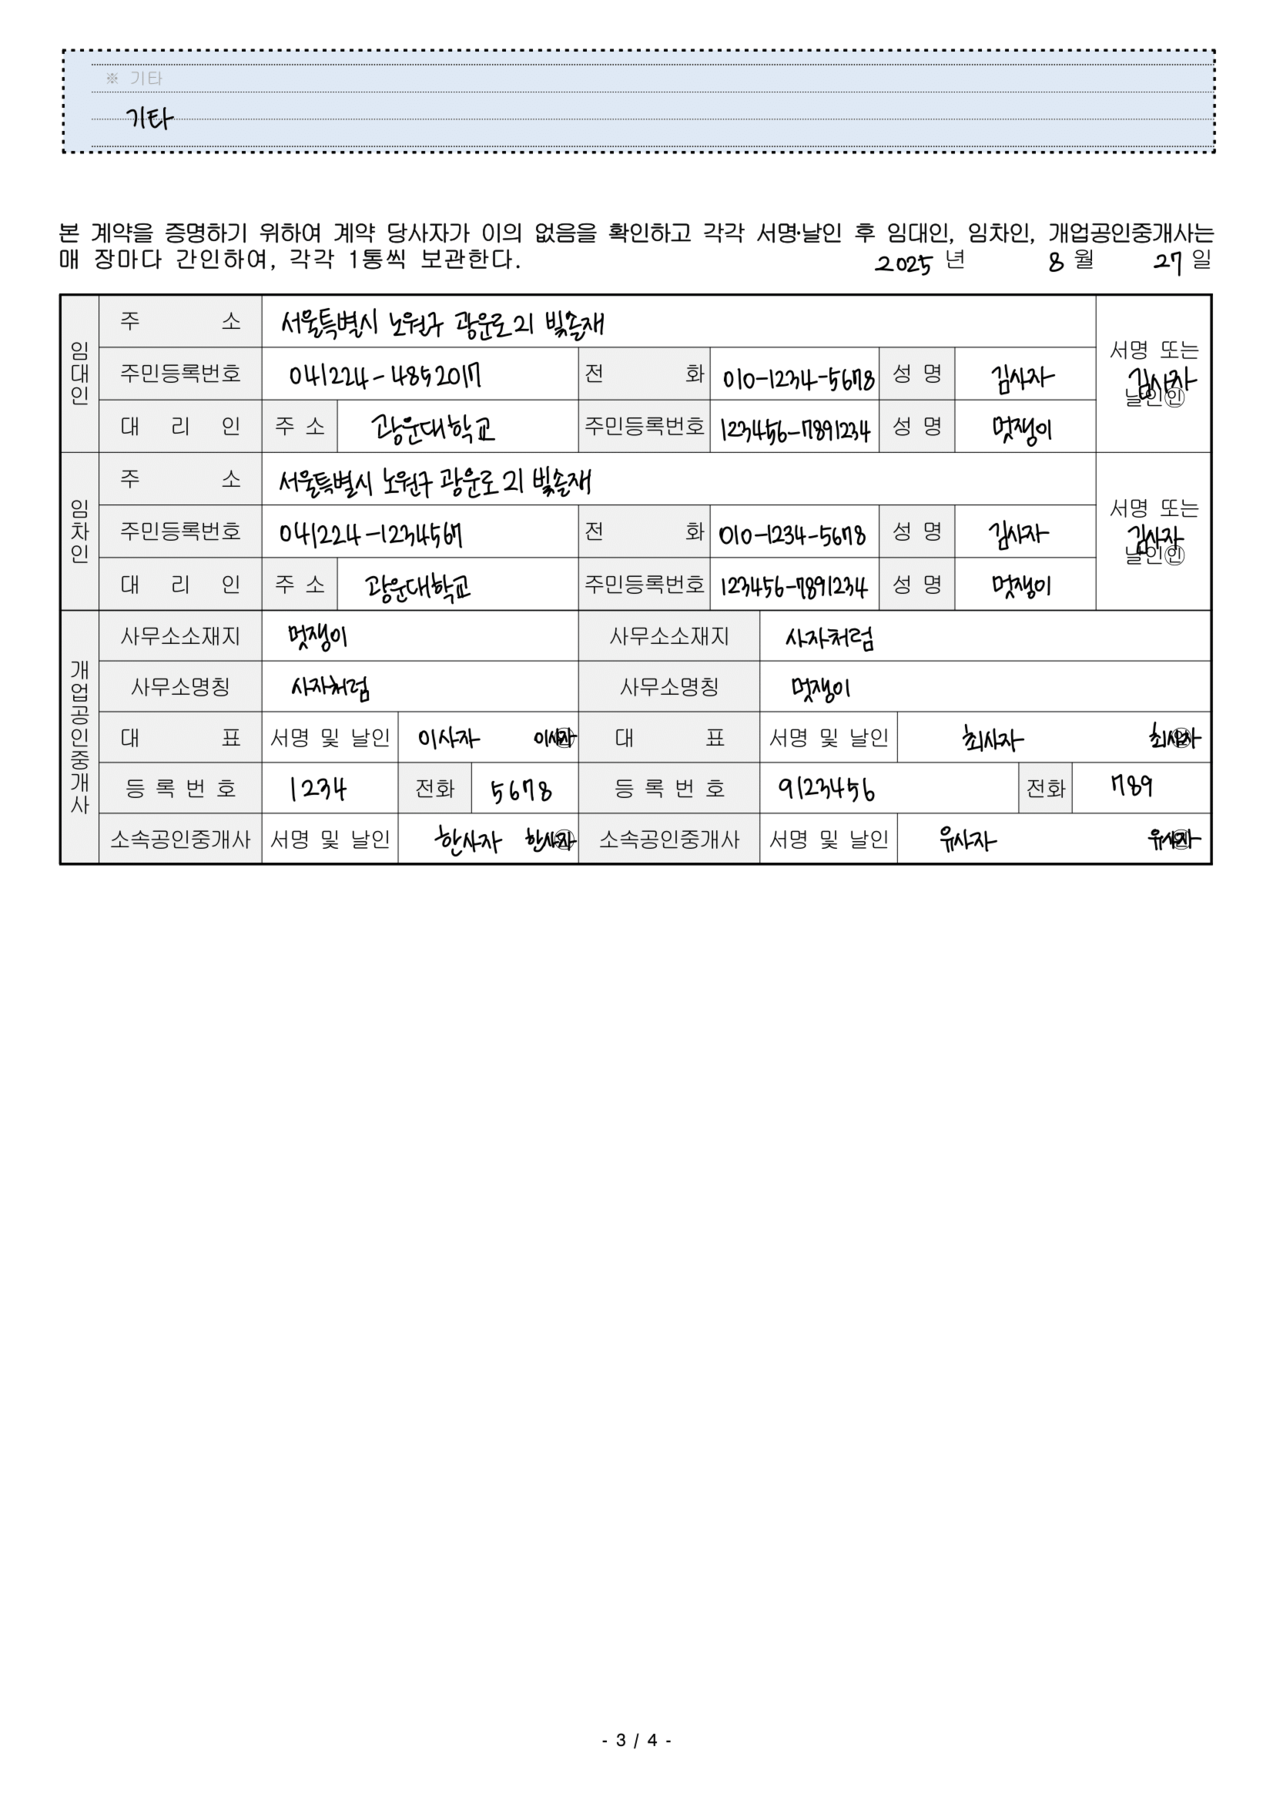 ※ 기타
기타
본 계약을 증명하기 위하여 계약 당사자가 이의 없음을 확인하고 각각 서명·날인 후 임대인, 임차인, 개업공인중개사는
매 장마다 간인하여, 각각 1통씩 보관한다. 2025 년 8 월 27 일
임대인
주 소 서울특별시 노원구 광운로 21 빛솔재
주민등록번호 041224-4852017 전 화 010-1234-5678 성 명 김사자
대 리 인 주 소 광운대학교 주민등록번호 123456-7891234 성 명 멋쟁이
서명 또는
김사자
날인㊞
임차인
주 소 서울특별시 노원구 광운로 21 빛솔재
주민등록번호 041224-1234567 전 화 010-1234-5678 성 명 김사자
대 리 인 주 소 광운대학교 주민등록번호 123456-7891234 성 명 멋쟁이
서명 또는
김사자
날인㊞
개업공인중개사
사무소소재지 멋쟁이 사무소소재지 사자처럼
사무소명칭 사자처럼 사무소명칭 멋쟁이
대 표 서명 및 날인 이사자 이사자 ㊞ 대 표 서명 및 날인 최사자 최사자 ㊞
등 록 번 호 1234 전화 5678 등 록 번 호 9123456 전화 789
소속공인중개사 서명 및 날인 한사자 한사자 ㊞ 소속공인중개사 서명 및 날인 유사자 유사자 ㊞
- 3 / 4 -